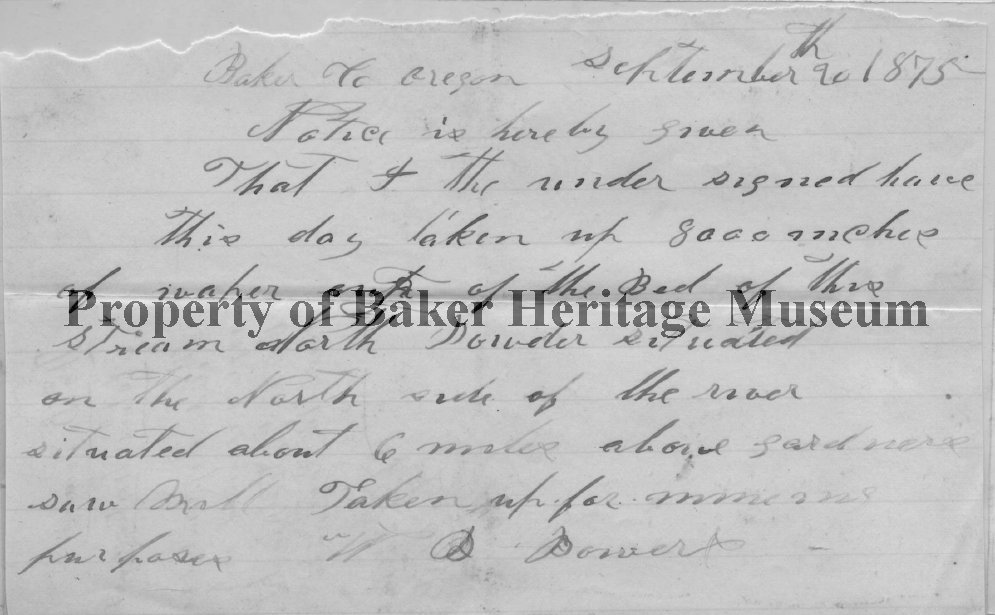 Baker Co Oregon September 20th 1875
Notice is hereby given
That I the under signed have
this day taken up 8000 inches
of water out of the Bed of this
Property of Baker Heritage Museum
stream North Powder situated
on the North side of the river
situated about 6 miles above gardners
saw Mill Taken up for mineing
purposes W B Bowers